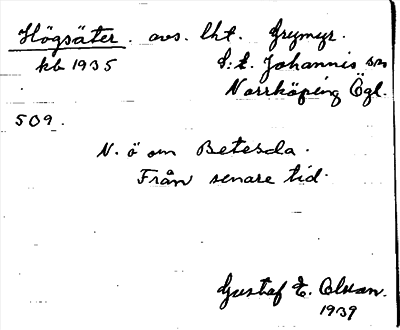 Högsäter. avs. lht. Grymyr.
kb 1935 S:t. Johannis sn
Norrköping Ögl.
509.
N. ö om Betesda.
Från senare tid.
Gustaf E. Olsson.
1939